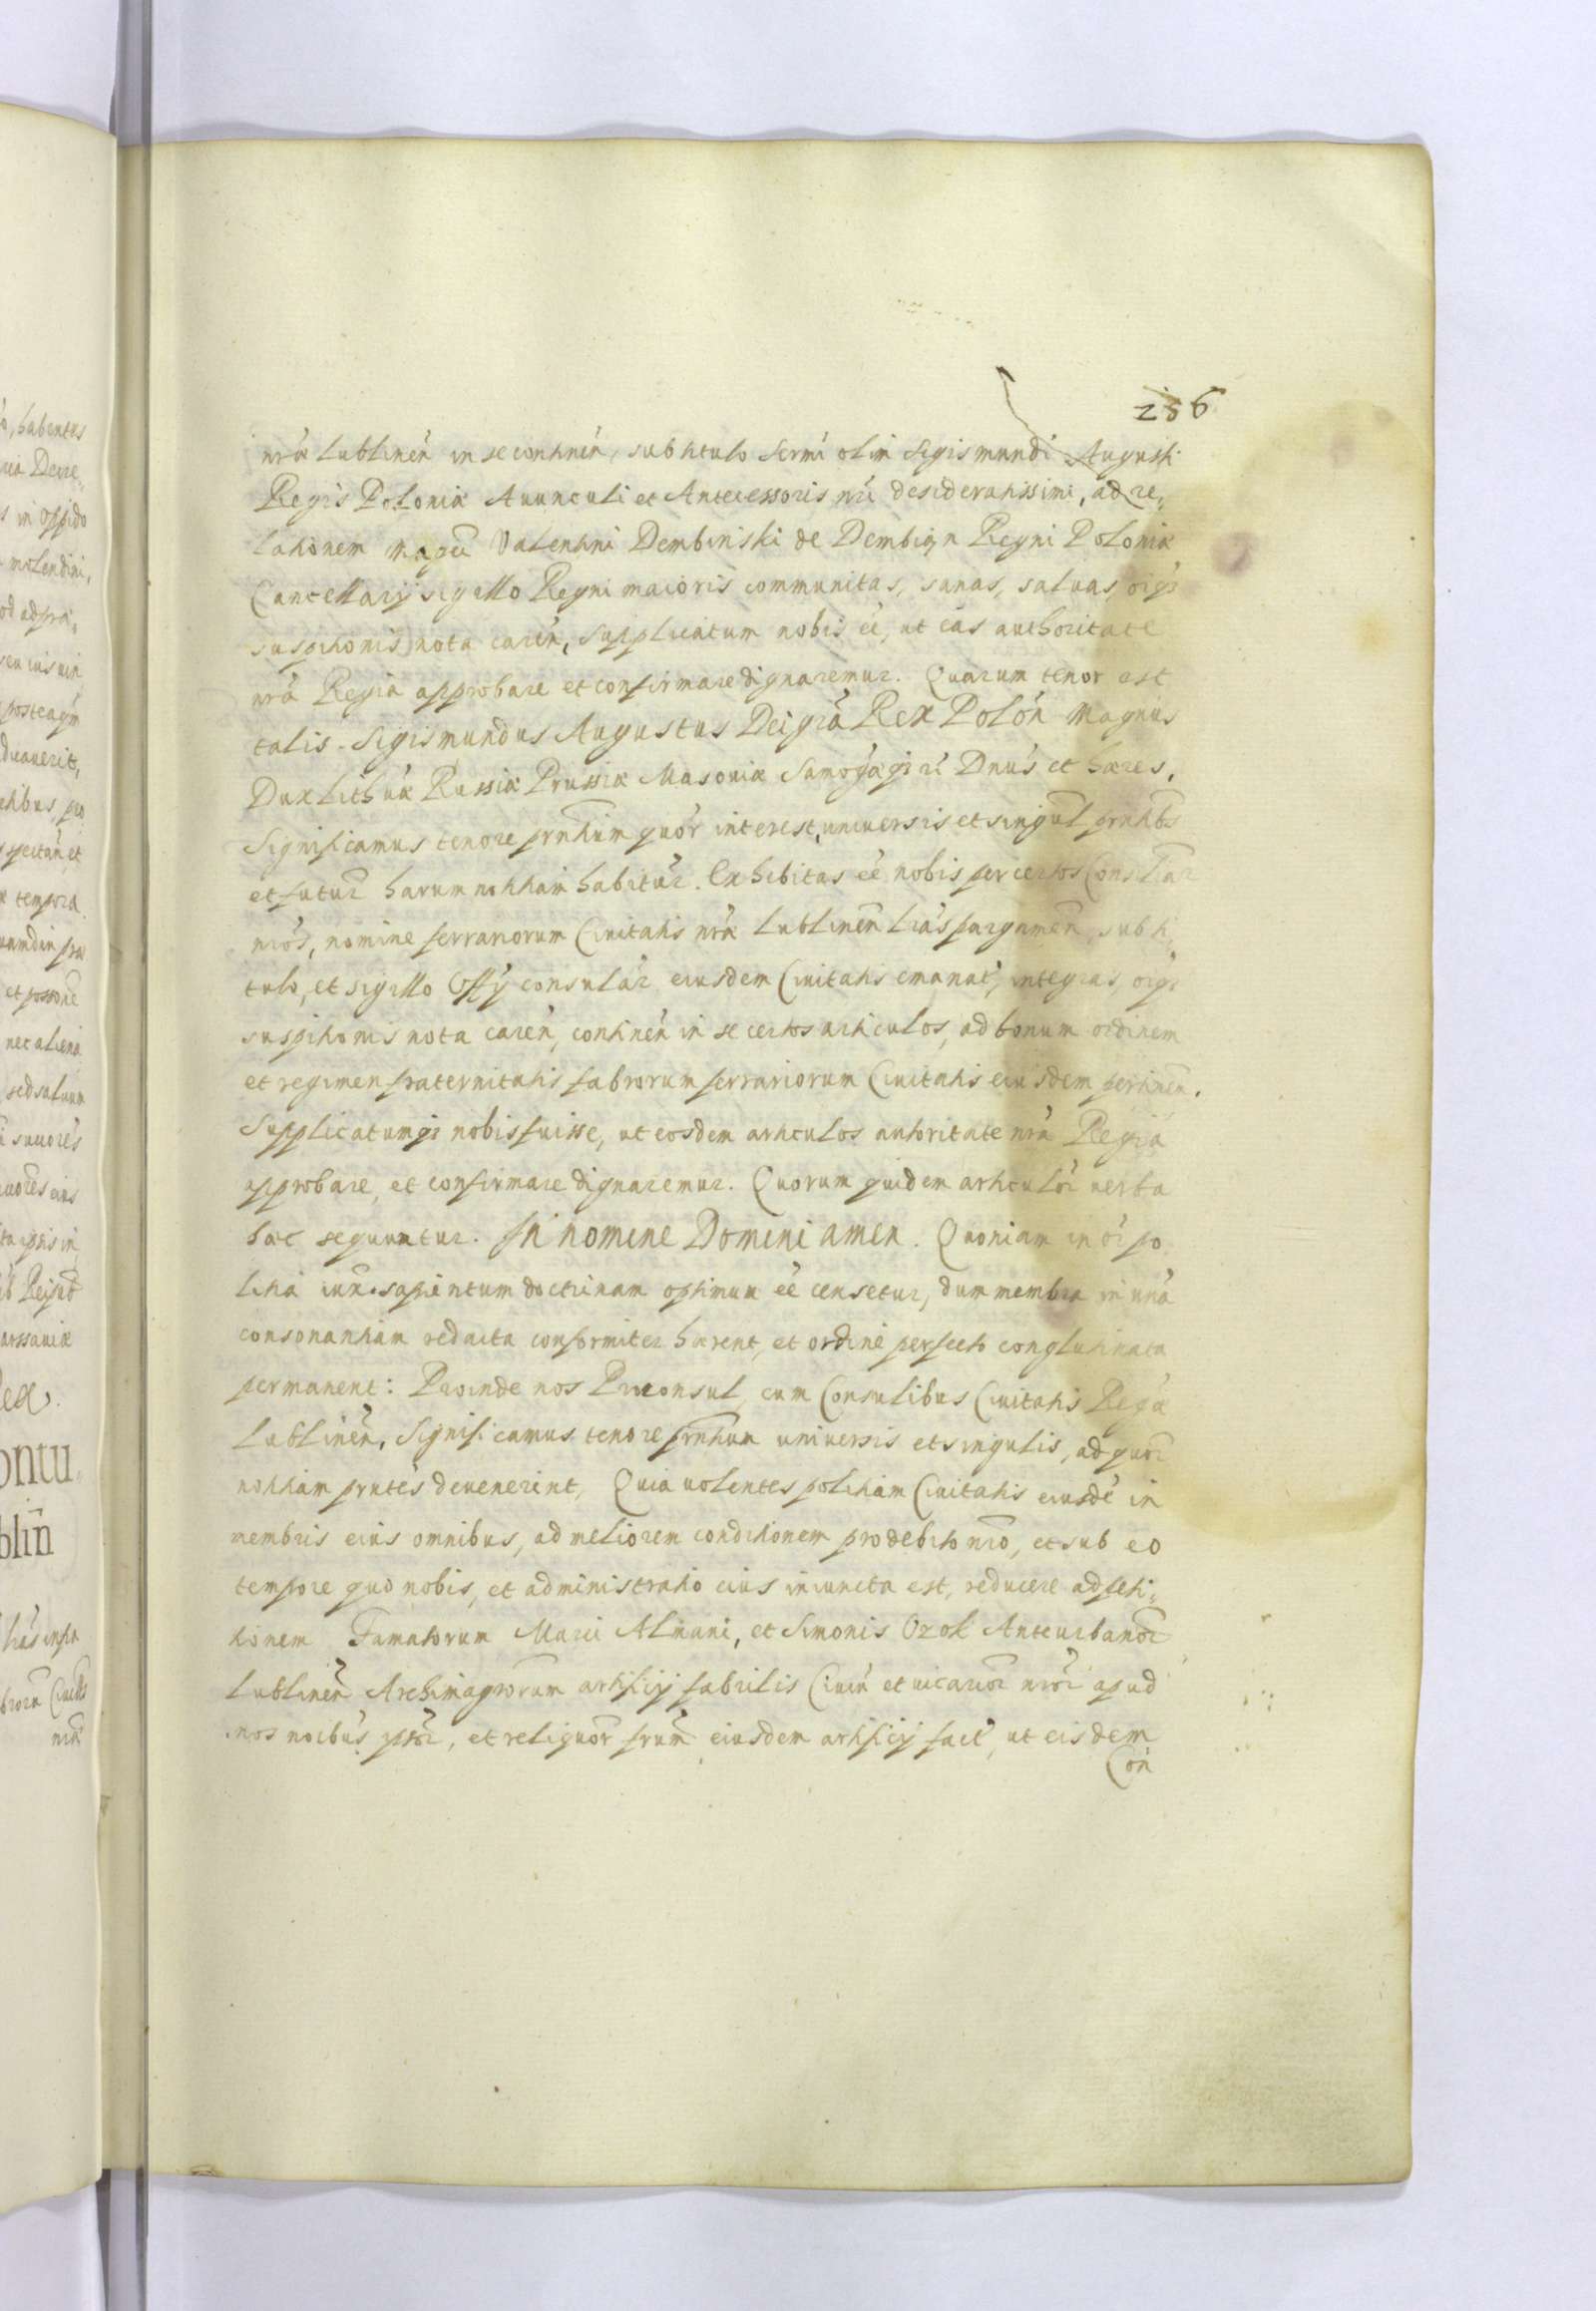 256
nrǽ Lublineń in se continéń, sub titulo Sermi olim Sigismundi Augusti
Regis Poloniæ Auunculi et Antecessoris nri desideratissimi, ad re„
lationem Magci Valentini Dembinski de Dembian Regni Poloniæ
Cancellarij sigillo Regni maioris communitas, sanas, saluas, oiq3
suspitionis nota careń, supplicatum nobis ée, ut eas authoritate
nrá Regia approbare et confirmare dignaremur. Quarum tenor est
talis. Sigismundus Augustus Dei grã Rex Polóń Magnus
Dux Lithuæ Russiæ Prussiæ Masouiæ Samog̃æq3 rc̃ Dnus et hæres.
Significamus tenore prñtium quoȓ interest, uniuersis et singul̃ prñtibs
et futur̃ harum notitiam habitur̃. Exhibitas ée nobis per certos Consular
nros, nomine ferrariorum Ciuitatis nræ Lublineñ lrás pargameñ, sub ti
tulo, et sigillo Offij consulár eiusdem Ciuitatis emanat́, integras, oiq3
suspitionis nota careń, continéń in se certos articulos, ad bonum ordinem
et regimen fraternitatis fabrorum ferrariorum Ciuitatis eiusdem pertineń.
Supplicatumq3 nobis fuisse, ut eosdem articulos autoritate nrá Regia
approbare, et confirmare dignaremur. Quorum quidem articulor̃ uerba
hæc sequuntur. In nomine Domini amen. Quoniam in oi po
litia iux. sapientum doctrinam optimum ée censetur, dum membra in uná
consonantiam redacta conformiter hærent, et ordine perfecto conglutinata
permanent: Proinde nos Proconsul, cum Consulibus Ciuitatis Regæ
Lublinéń, Significamus tenore prñtium uniuersis et singulis, ad quor̃
notitiam prntes deuenerint, Quia uolentes politiam Ciuitatis eiusdé in
membris eius omnibus, ad meliorem conditionem pro debito nro, et sub eo
tempore quo nobis, et administratio eius iniuncta est, reducere ad peti„
tionem Famatorum Marci Almani, et Simonis Ozok Anteurbanor̃
Lublinéń Archimagrorum artificij fabrilis Ciuiń et uicarior̃ nror̃ apud
nos noibus ipsor̃, et reliquor̃ frum̃ eiusdem artificij fact́, ut eisdem
Coń